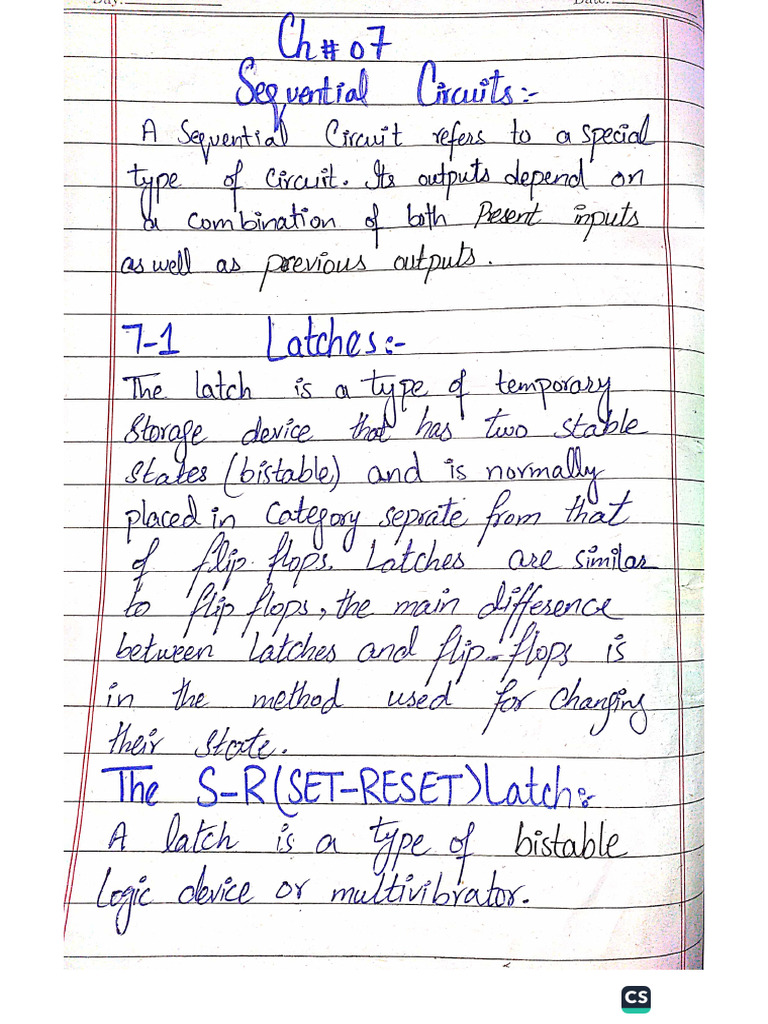 Day: Date:
Ch # 07
Sequential Circuits:-
A Sequential Circuit refers to a special
type of circuit. Its outputs depend on
a combination of both Present inputs
as well as previous outputs.
7-1 Latches:-
The latch is a type of temporary
Storage device that has two stable
States (bistable) and is normally
placed in category seprate from that
of flip-flops. Latches are similar
to flip flops, the main difference
between latches and flip-flops is
in the method used for changing
their state.
The S-R(SET-RESET) Latch:-
A latch is a type of bistable
Logic device or multivibrator.
CS